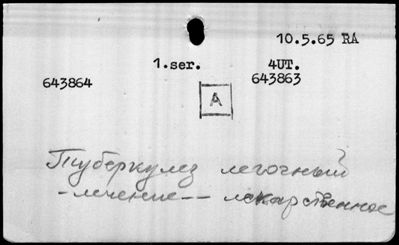 10.5.65 RA
1.ser. 4UT.
643864 643863
A
Туберкулез легочный
- лечение -- лекарственное